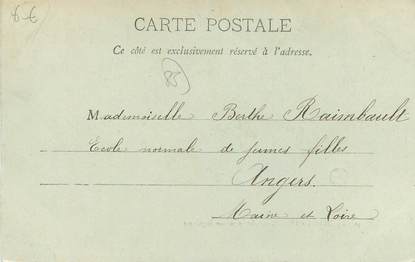 6-€
CARTE POSTALE
Ce côté est exclusivement réservé à l'adresse.
85
Mademoiselle Berthe Raimbault
Ecole normale de jeunes filles
Angers.
Maine et Loire